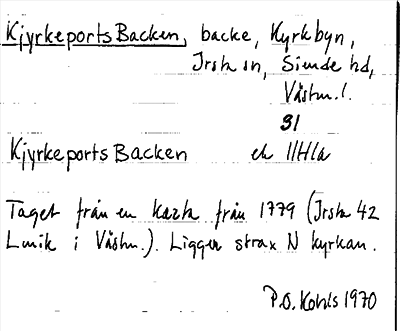 Kjyrkeports Backen, backe, Kyrkbyn,
Irsta sn, Siende hd,
Västm.l.
31
Kjyrkeports Backen ek 11H1a
Taget från en karta från 1779 (Irsta 42
Lmk i Västm.). Ligger strax N kyrkan.
P.O. Kohls 1970